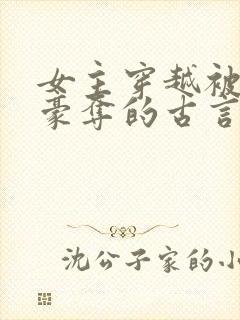 女主穿越被
豪夺的古言
沈公子家的小